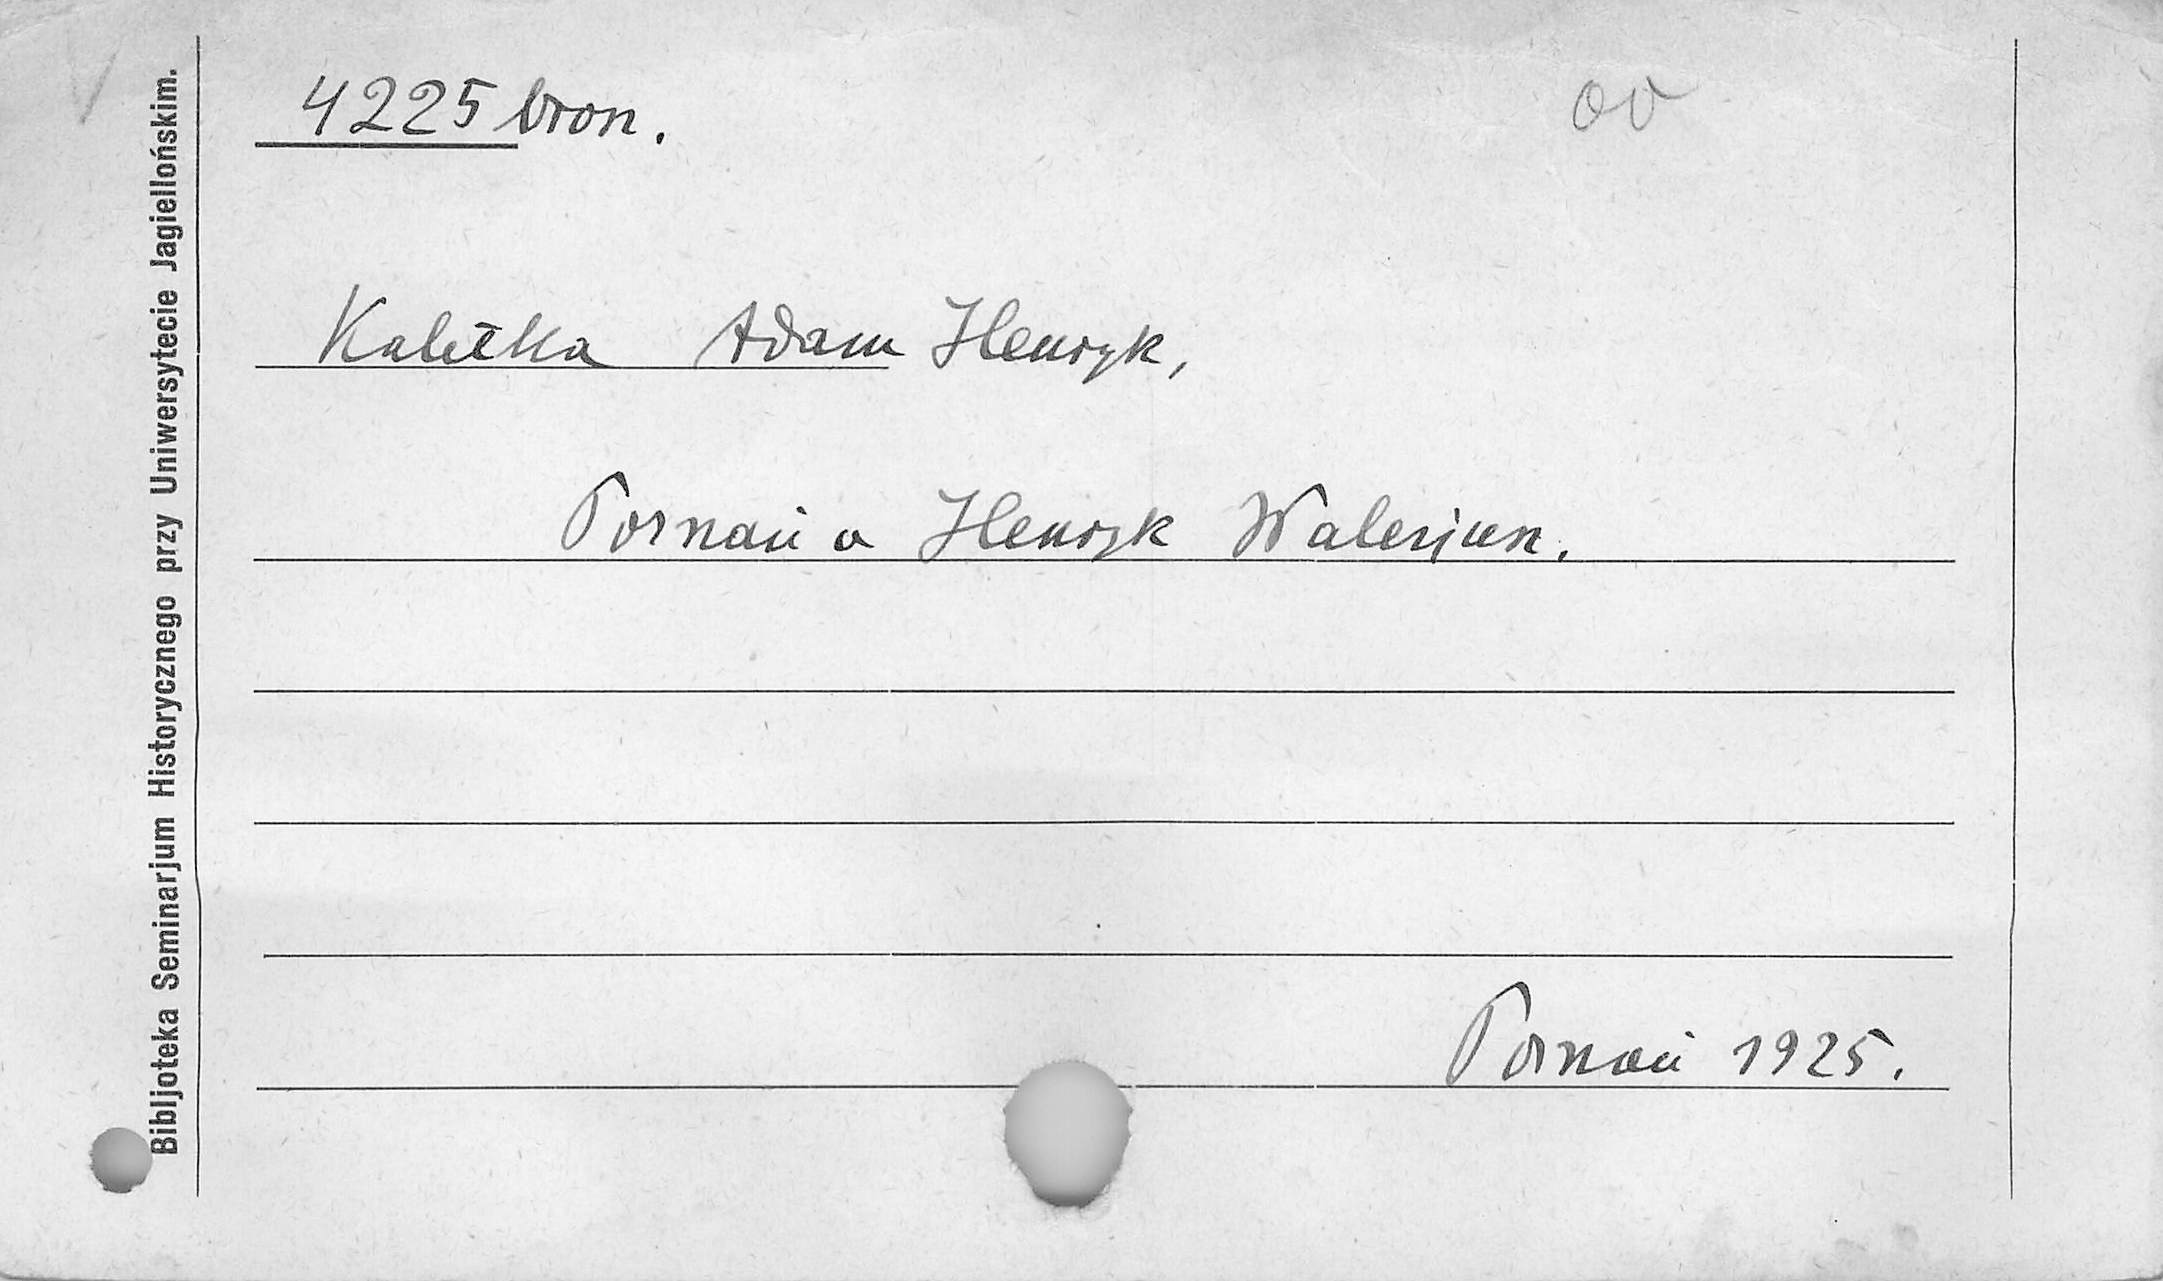 4225 bron.
Kaletka Adam Henryk,
Poznań a Henryk Walerjan.
Poznań 1925.
Bibljoteka Seminarjum Historycznego przy Uniwersytecie Jagiellońskim.